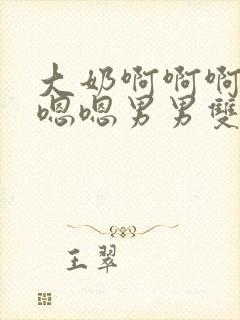 大奶啊啊啊
嗯嗯男男雙
王翠